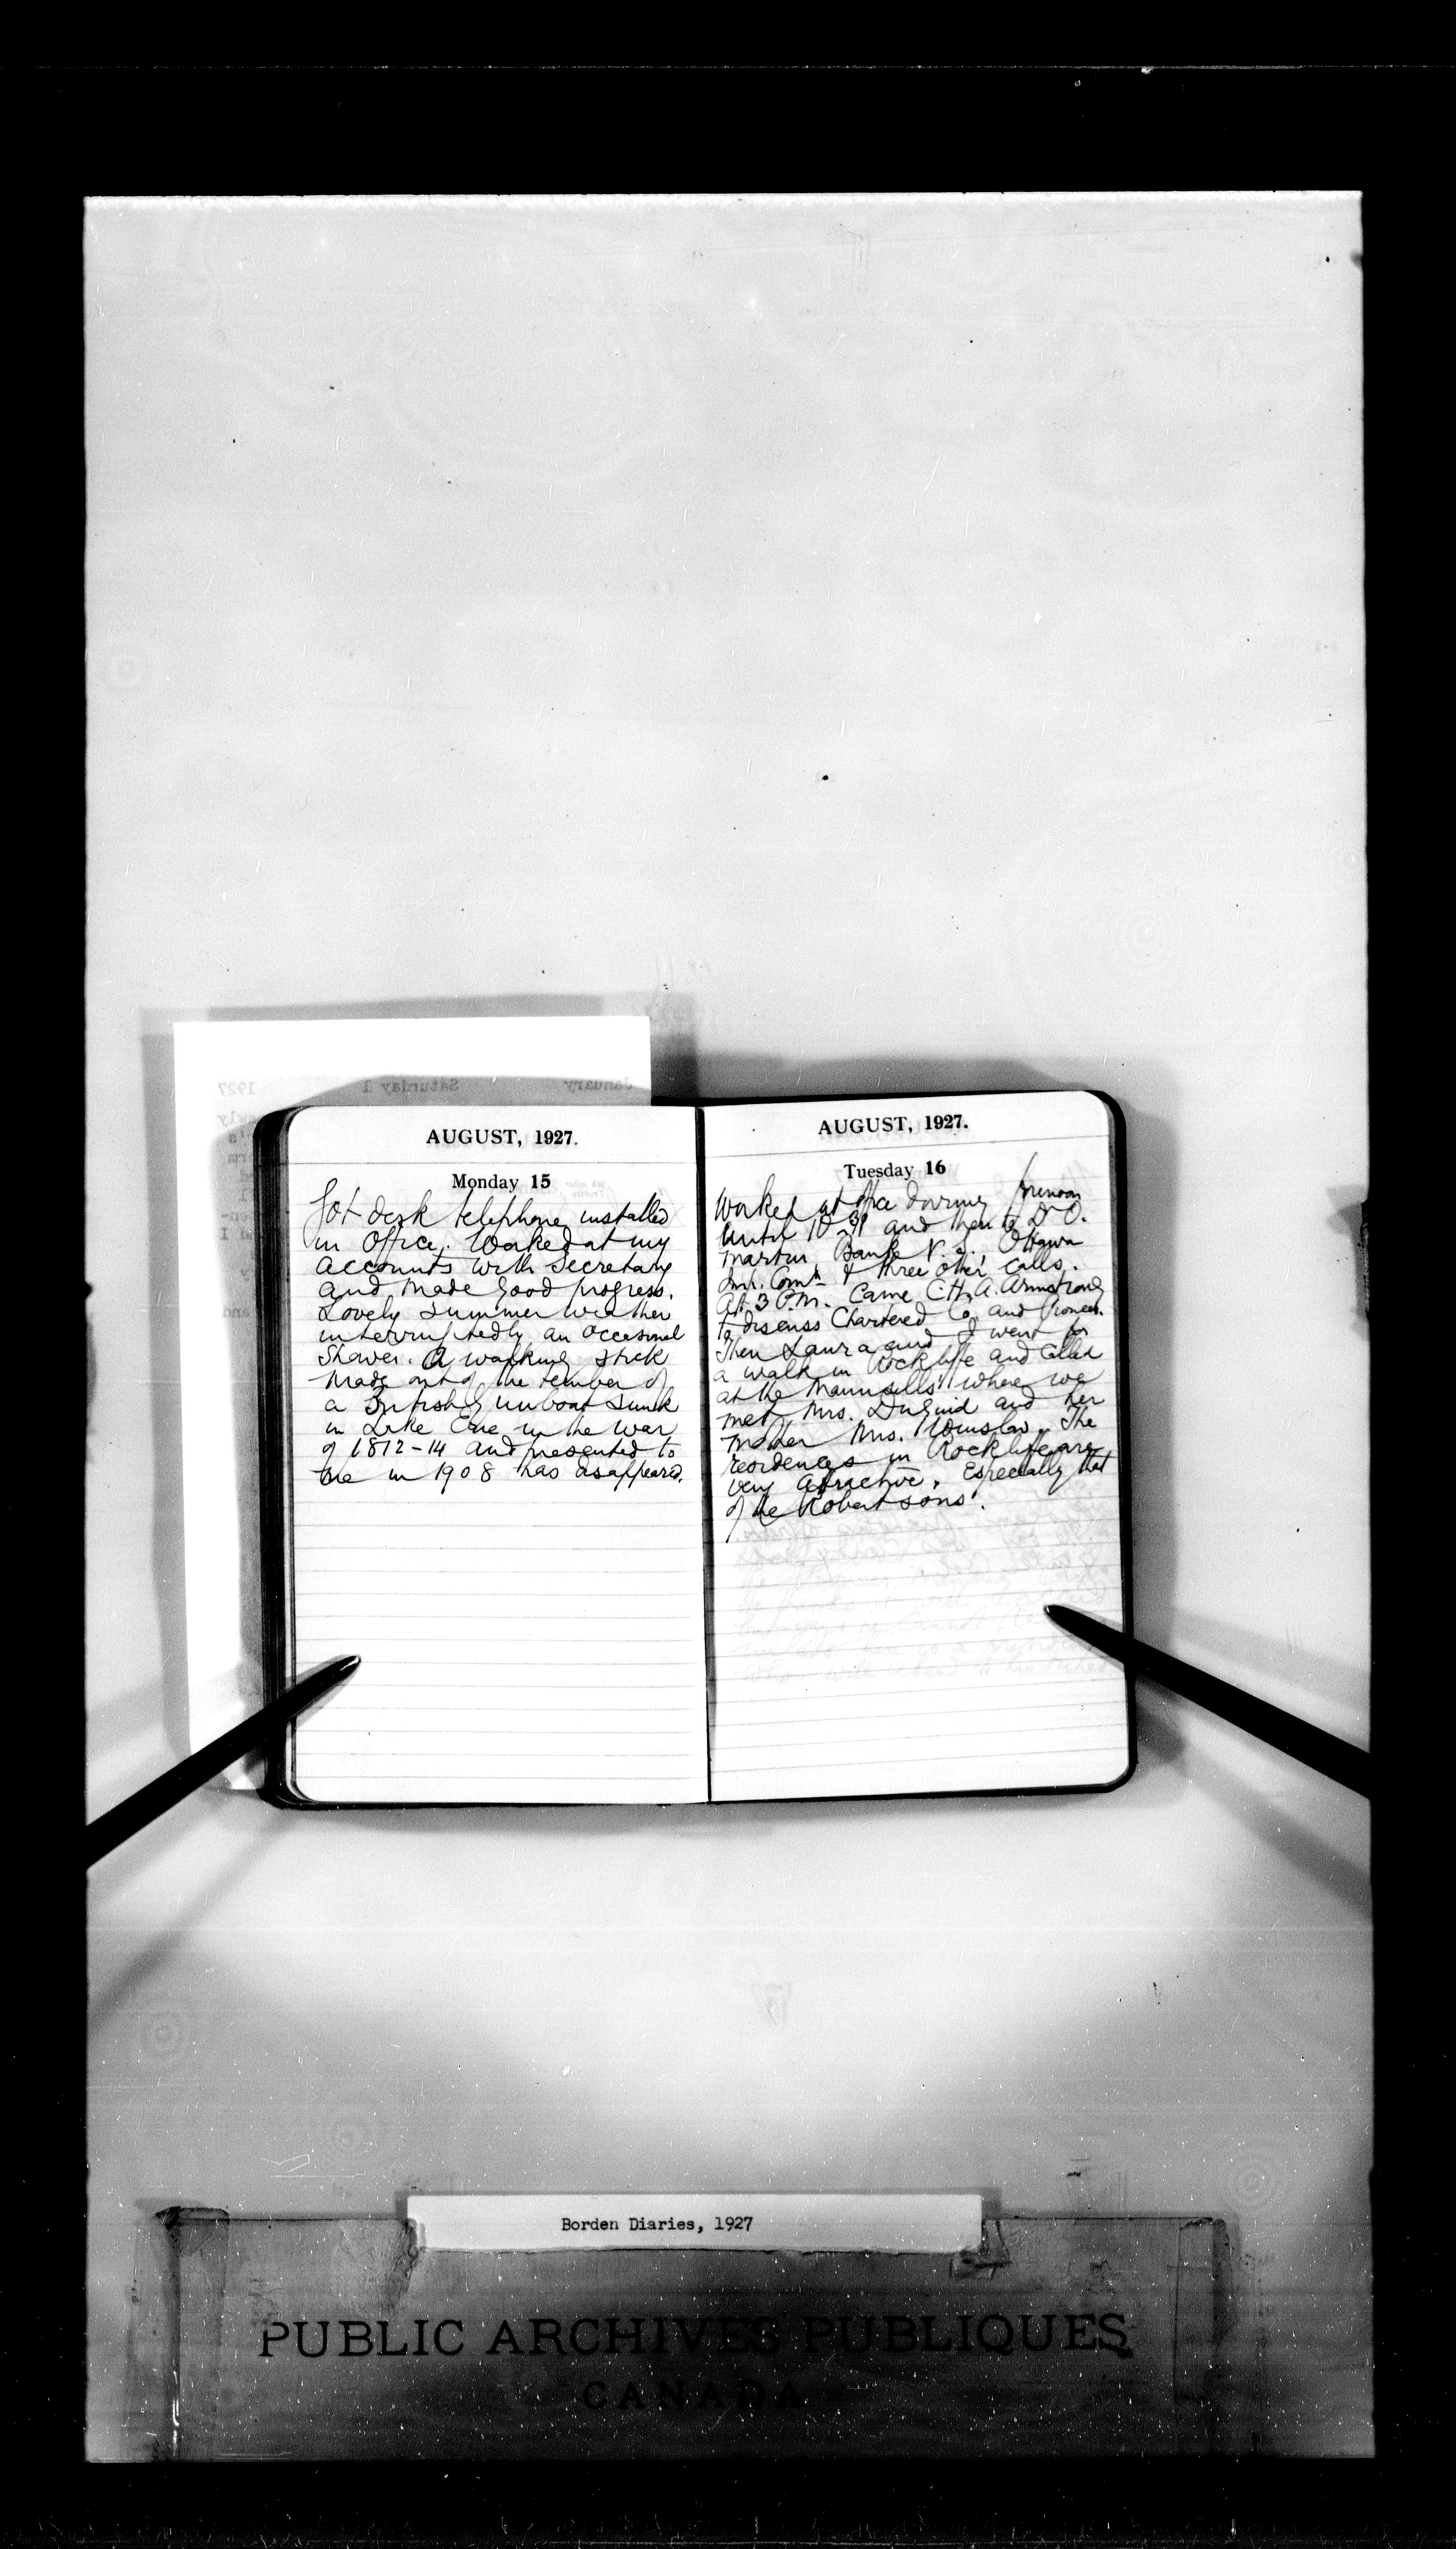 AUGUST, 1927.
Monday 15
Got desk telephone installed
in Office. Worked at my
accounts with Secretary
and made good progress.
Lovely summer weather
interruptedly an occasional
Shower. A walking stick
made out of the timber of
a British gunboat sunk
in Lake Erie in the war
of 1812-14 and presented to
me in 1908 has disappeared.
AUGUST, 1927.
Tuesday 16
Worked at office during forenoon
until 10 and then to D. O.
Martin Bank N. S., Ottawa
Imp. Comn & three other calls.
At 3 P.M. Came C.H.A. Armstrong
to discuss Chartered Co. and
Then Laura and I went for
a walk in Rockliffe and called
at the Maunsells' where we
met Mrs. Duguid and her
mother Mrs. Winslow. The
residences in Rockliffe are
very attractive. Especially that
of the Robertsons'.
January Saturday 1 1927
Borden Diaries, 1927
PUBLIC ARCHIVES PUBLIQUES
CANADA